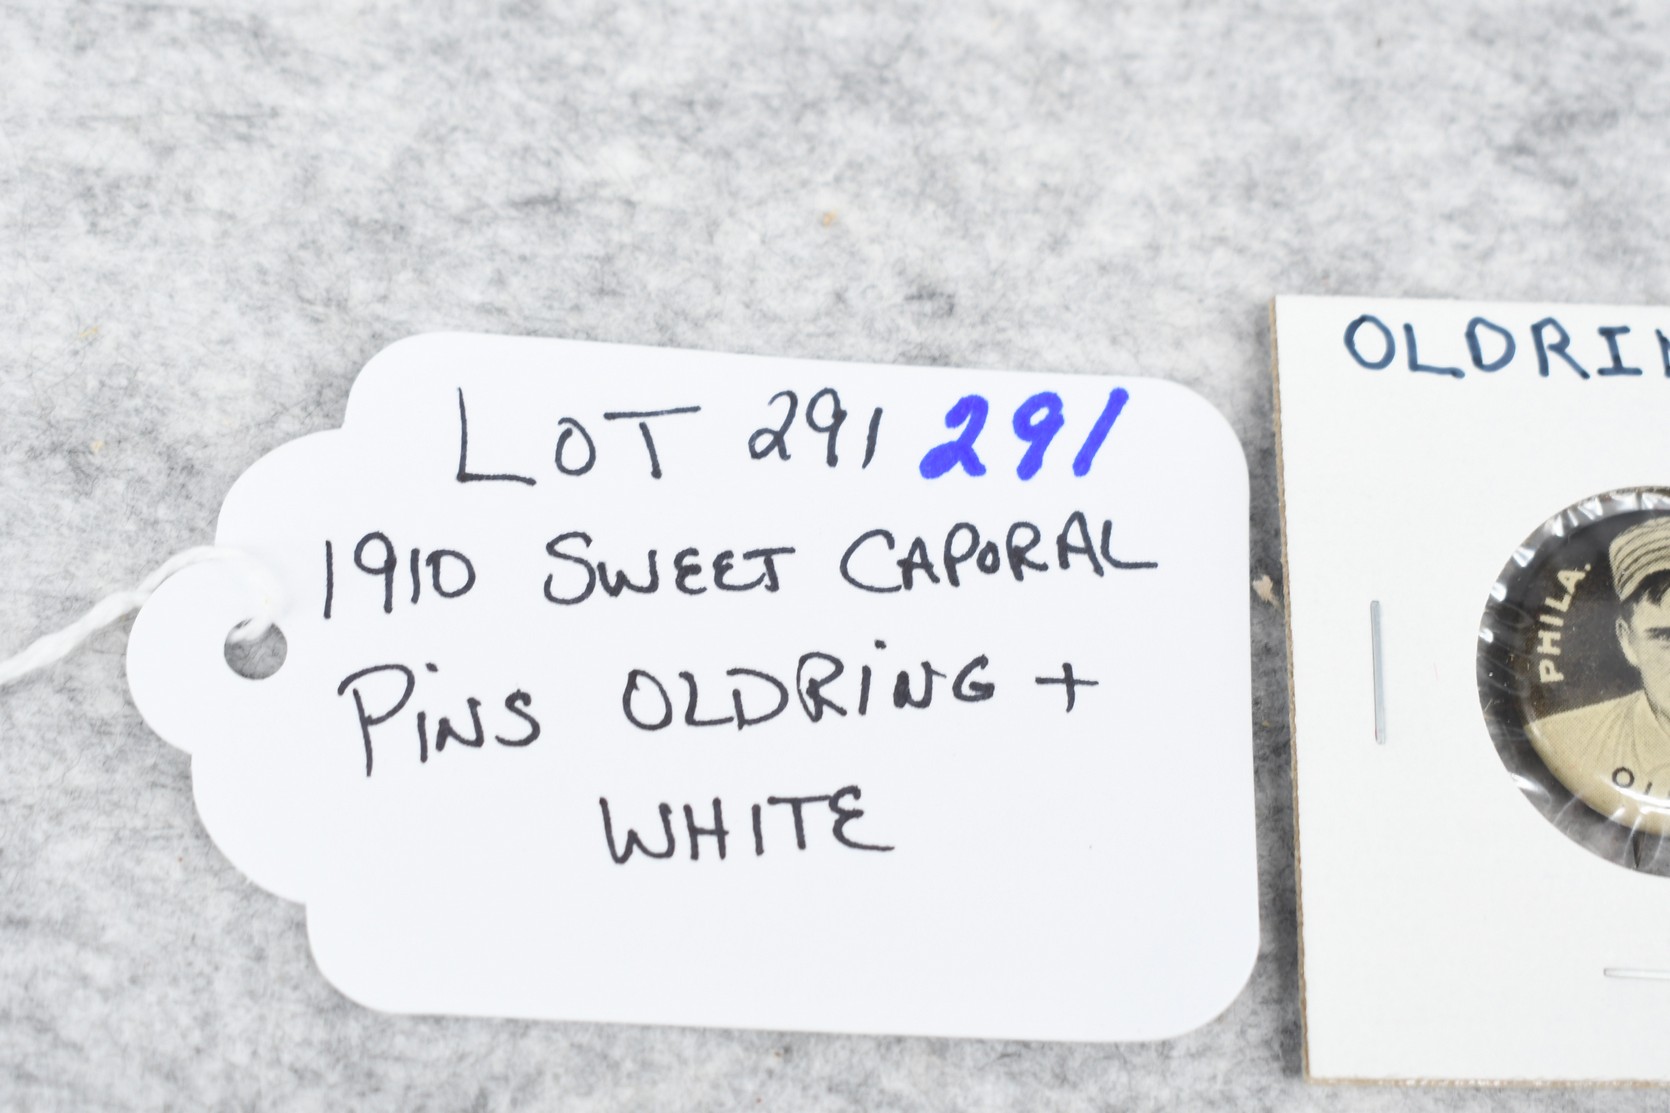 LOT 291 291
1910 SWEET CAPORAL
PINS OLDRING +
WHITE
OLDRIN
PHILA.